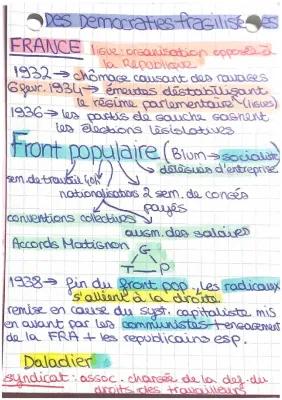 Des Démocraties fragilisées
FRANCE ligue: organisation opposée à
la République
1932 → chômage causant des ravages
6 fevr. 1934 → émeutes déstabilisant
le régime parlementaire (ligues)
1936 → les partis de gauche gagnent
les élections législatives
Front populaire (Blum → socialiste)
délégués d'entreprise
sem. de travail 40h
nationalisations 2 sem. de congés
payés
conventions collectives
augm. des salaires
Accords Matignon
G
T P
1938 → fin du front pop, les radicaux
s'allient à la droite
remise en cause du syst. capitaliste mis
en avant par les communistes + engagement
de la FRA + les republicains esp.
Daladier
syndicat: assoc. chargée de la def. du
droits des travailleurs